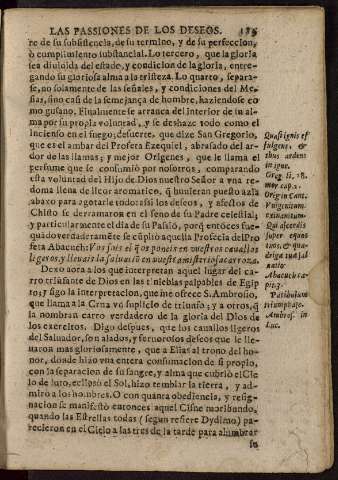 LAS PASSIONES DE LOS DESEOS.
re de su subsistencia, de su termino, y de su perfeccion,
ò cumplimiento substancial. Lo tercero, que la gloria
sea dividida del estado, y condicion de la gloria, entre-
gando su gloriosa alma a la tristeza. Lo quarto, separa-
se, no solamente de las señales, y condiciones del Me-
sias, sino casi de la semejança de hombre, haziendose co
mo gusano. Finalmente se arranca del interior de su al-
ma por su propia voluntad, y se deshaze todo como el
Incienso en el fuego; desuerte, que dize San Gregorio,
que es el ambar del Profeta Ezequiel, abrasado del ar-
dor de las llamas; y mejor Origenes, que le llama el
perfume que se consumiò por nosotros, comparando
esta voluntad del Hijo de Dios nuestro Señor a vna re-
doma llena de licor aromatico, q̃ huvieran puesto azia
abaxo para agotarle todo: assi los deseos, y afectos de
Chisto se derramaron en el seno de su Padre celestial;
y particularmente el dia de su Passiõ, porq̃ entonces fue-
quãdo verdaderamẽte se cũpliò aquella Profecia del Pro
feta Abacuch: Vos sois el q̃ os poneis en vuestros cavallos
ligeros, y llevais la salvaciõ en vuestra misteriosa carroza.
Dexo aora a los que interpretan aquel lugar del ca-
rro triũfante de Dios en las tinieblas palpables de Egip
to; y sigo la interpretacion, que me ofrece S. Ambrosio,
que llama a la Cruz vn suplicio de triunfo; y a otros, q̃
la nombran carro verdadero de la gloria del Dios de
los exercitos. Digo despues, que los cavallos ligeros
del Salvador, son alados, y fervorosos deseos que le lle-
varon mas gloriosamente, que a Elias al trono del ho-
nor, donde hizo vna entera consumacion de si propio,
con la separacion de su sangre, y alma que cubriò el Cie
lo de luto, eclipsò el Sol, hizo temblar la tierra, y ad-
mirò a los hombres. O con quanta obediencia, y resig-
nacion se manifestò entonces aquel Cisne moribundo,
quando las Estrellas todas (segun refiere Dydimo) pa-
recieron en el Cielo a las tres de la tarde para alumbrar
su
Quasi ignis ef
fulgens, &
thus ardens
in igne.
Greg. li. 28.
mor. cap. 2.
Origin Cant.
Vnguentum
exinanitum.
Qui ascendis
super equos
tuos, & qua-
driga tua sal
uatio
Abacuch ca-
pit. 3.
Patibulum
triumphale.
Ambros. in
Luc.